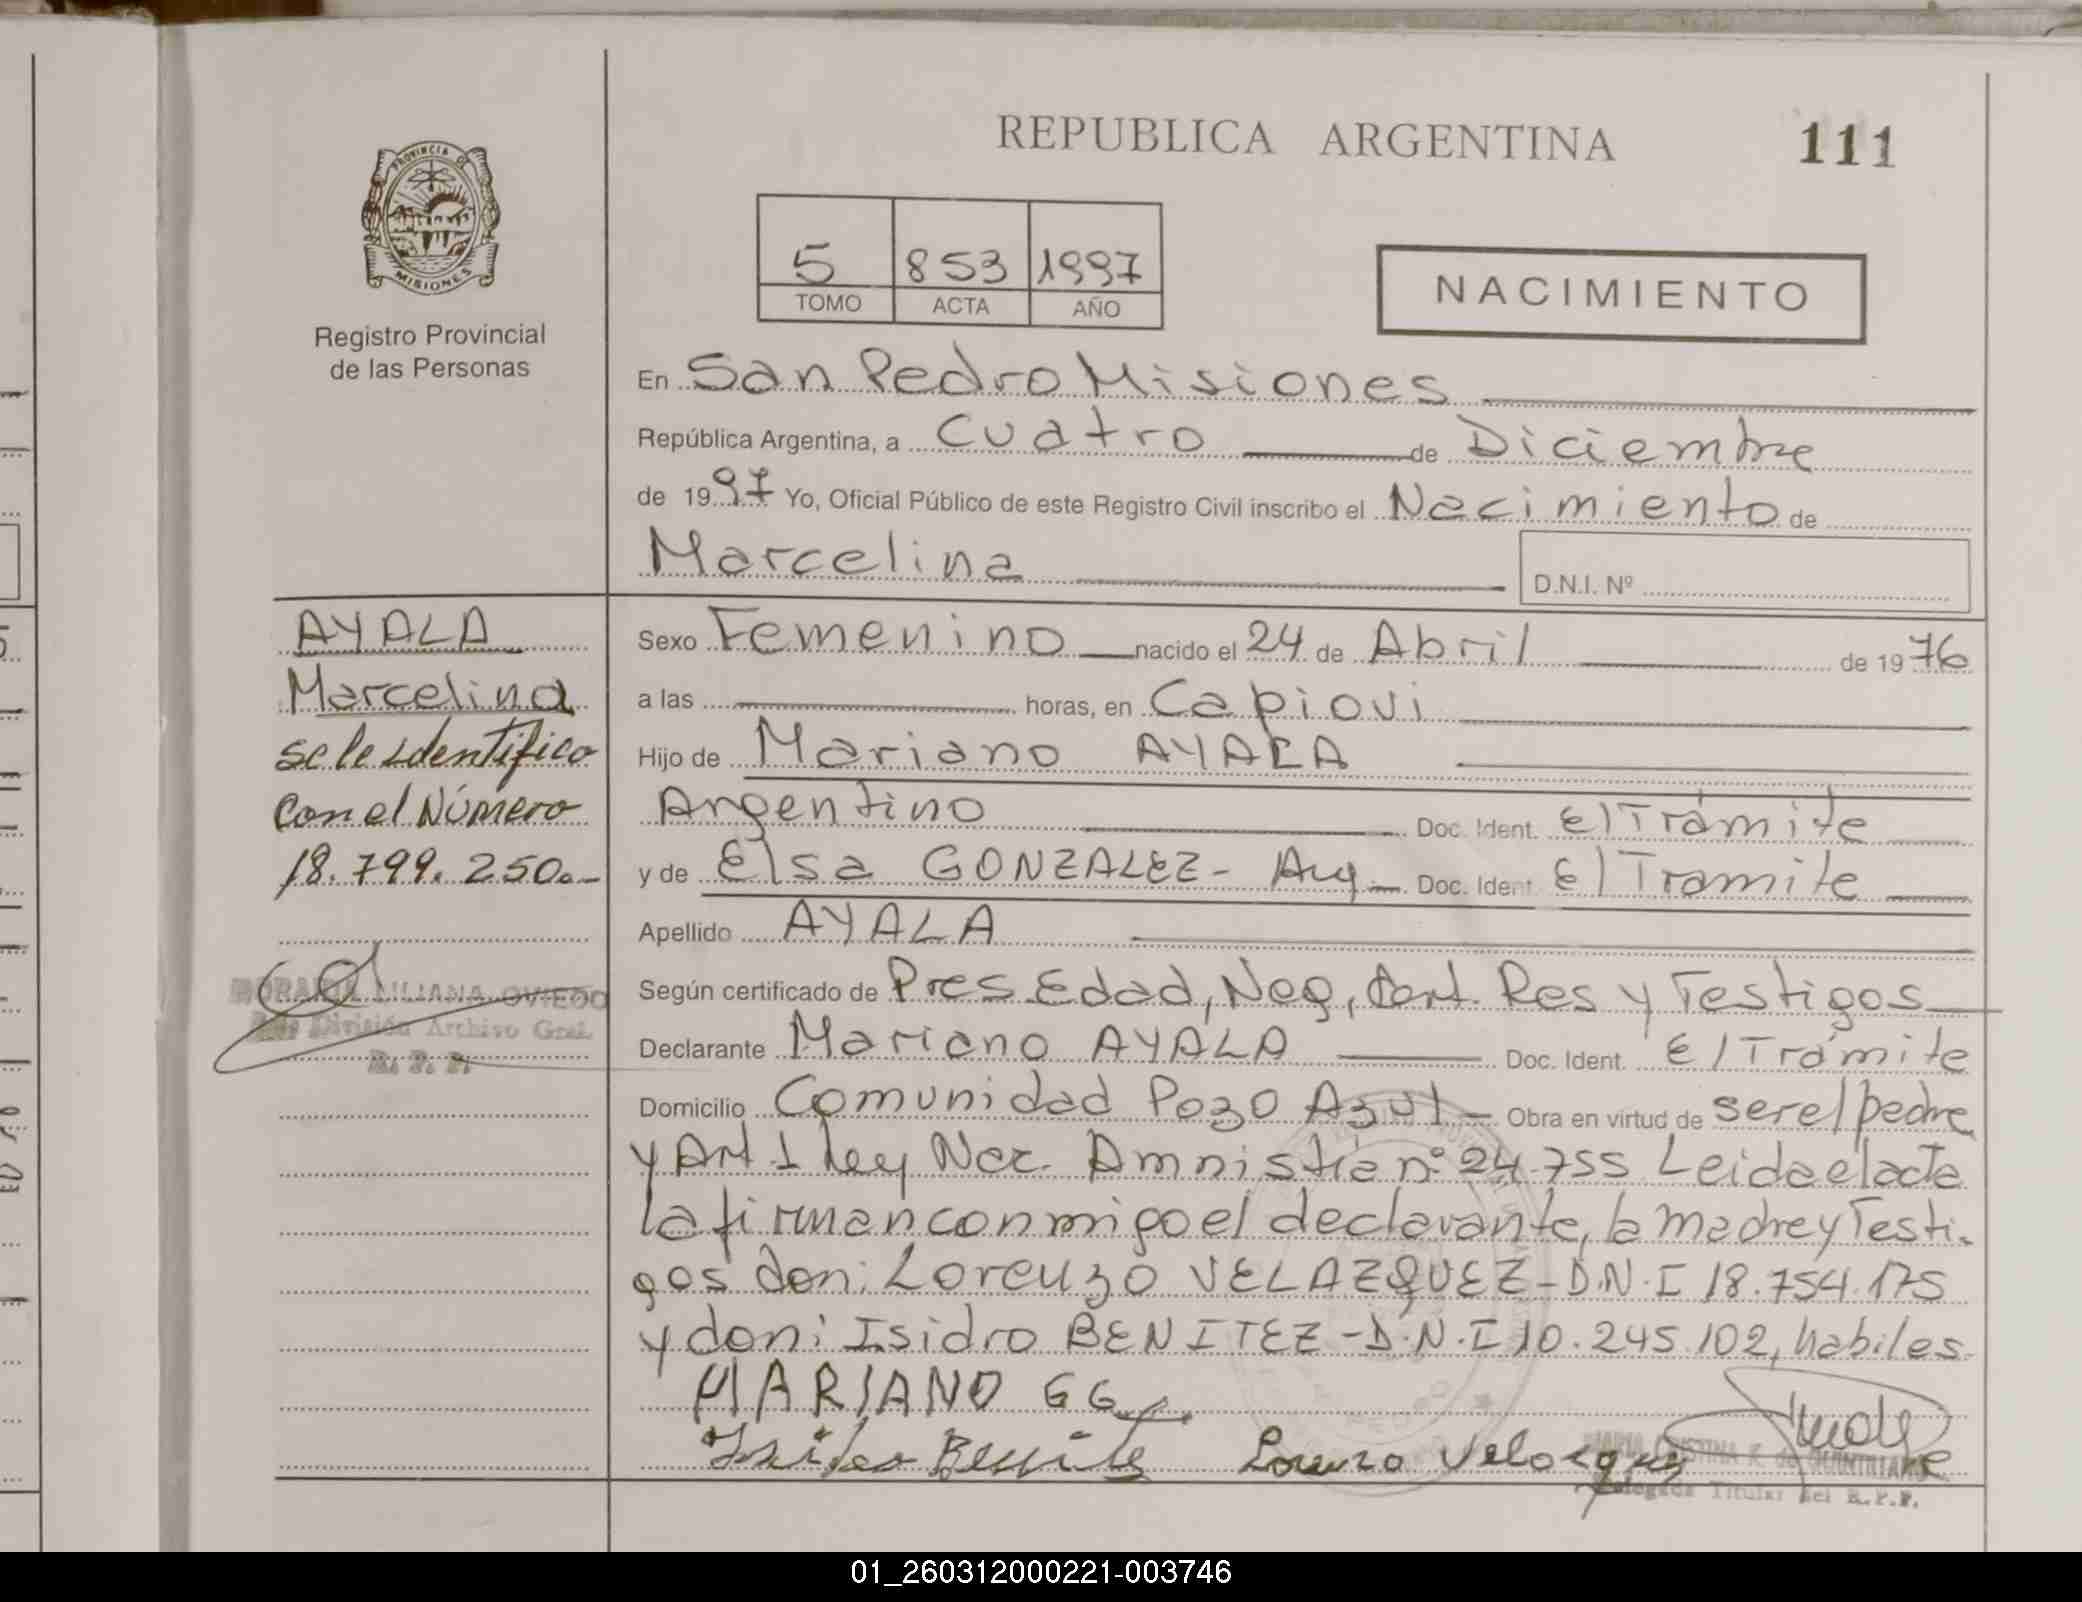 REPUBLICA ARGENTINA
111
PROVINCIA DE
MISIONES
Registro Provincial
de las Personas
5 853 1997
TOMO ACTA AÑO
NACIMIENTO
En San Pedro Misiones
República Argentina, a Cuatro de Diciembre
de 1997 Yo, Oficial Público de este Registro Civil inscribo el Nacimiento de
Marcelina
D.N.I. Nº
AYALA
Marcelina
se le identifico
con el Número
18.799.250.-
LILIANA OVIEDO
División Archivo Gral.
R. P. P.
Sexo Femenino nacido el 24 de Abril de 1976
a las horas, en Capiovi
Hijo de Mariano AYALA
Argentino Doc. Ident. E/Trámite
y de Elsa GONZALEZ- Arg- Doc. Ident. E/Tramite
Apellido AYALA
Según certificado de Pres Edad, Neg, Cert. Res y Testigos
Declarante Mariano AYALA Doc. Ident. E/Trámite
Domicilio Comunidad Pozo Azul - Obra en virtud de ser el padre
y Art. 1 Ley Nac. Amnistia nº 24.755 Leida el acta
la firman conmigo el declarante, la madre y Testi-
gos don: Lorenzo VELAZQUEZ-D.N.I 18.754.175
y don: Isidro BENITEZ-D.N.I 10.245.102, habiles
MARIANO GG
Isidro Benite Lorenzo Velazquez
CRISTINA K. de QUINTANA
Delegada Titular del R.P.P.
01_260312000221-003746